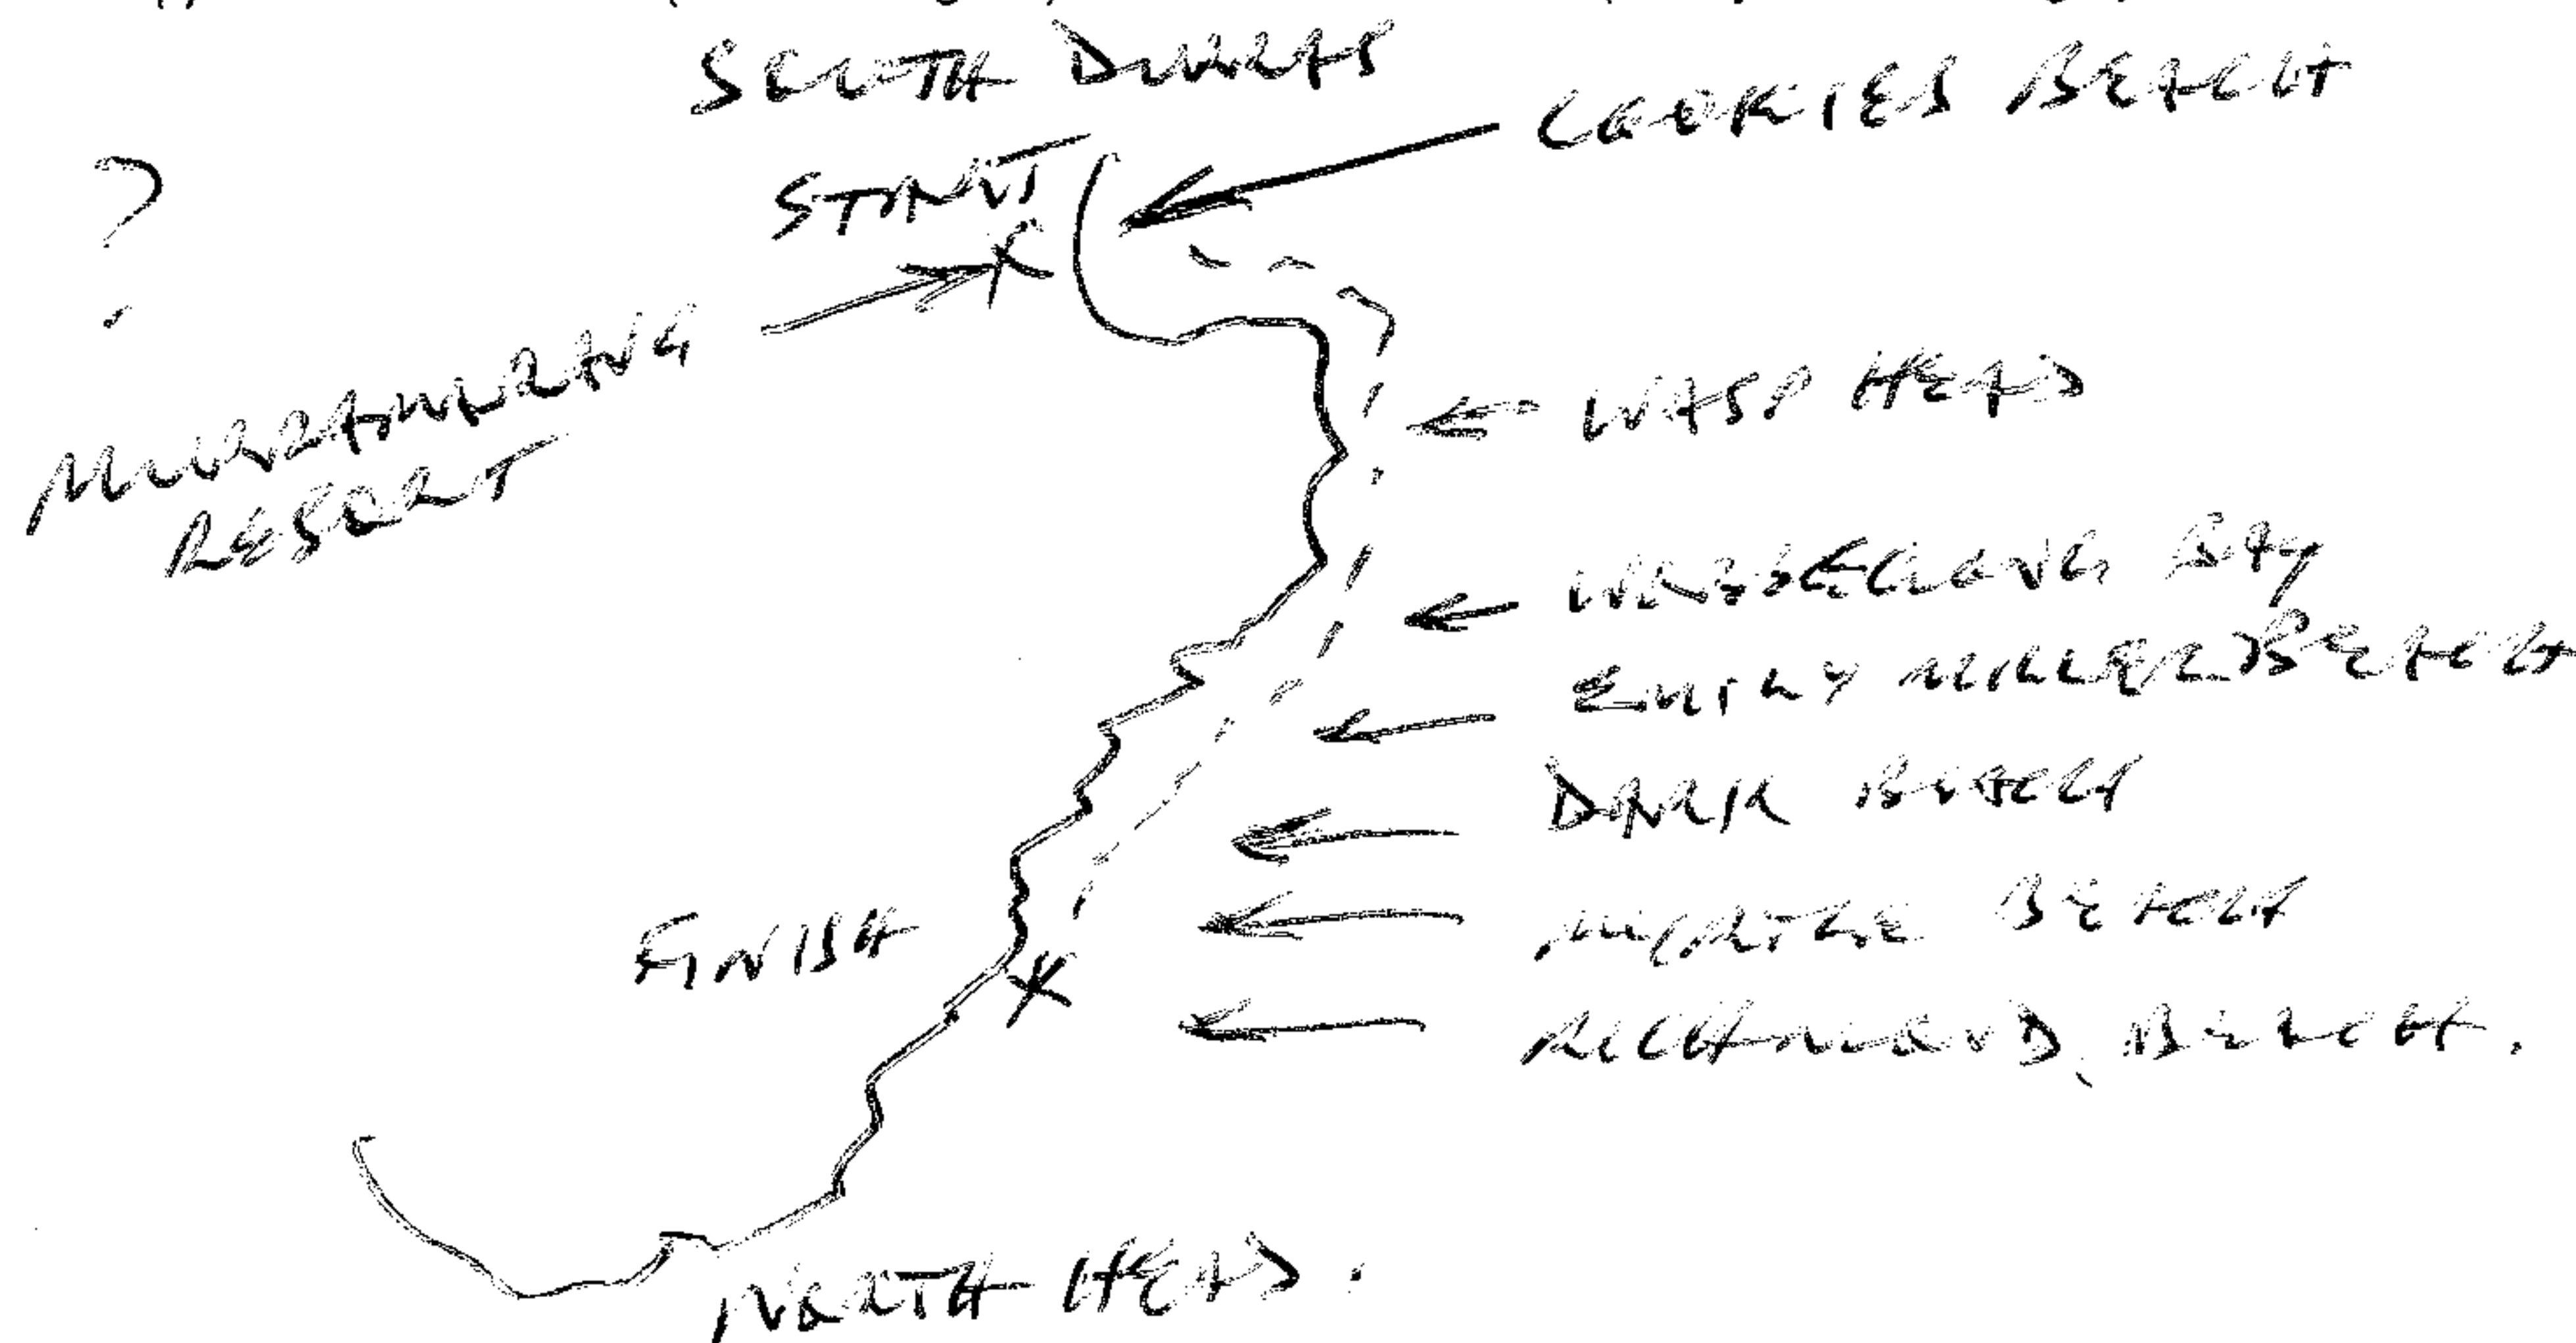 SOUTH DURRAS
COOKIES BEACH
START
?
MURRAMARANG
RESORT
WASP HEAD
EMILY MILLER BEACH
DARK BEACH
MYRTLE BEACH
FINISH
RICHMOND BEACH.
NORTH HEAD.